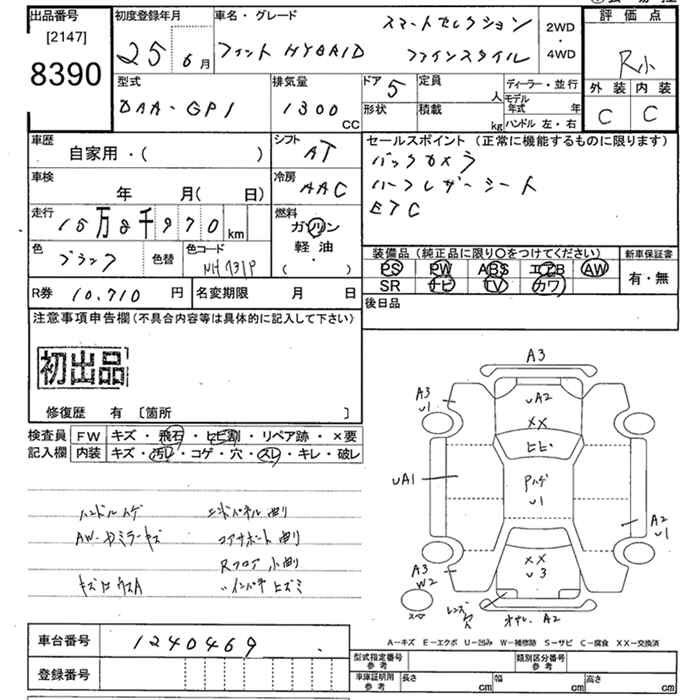 出品番号
[2147]
8390
初度登録年月
25 6月
車名・グレード
フィット HYBRID
スマートセレクション
ファインスタイル
2WD
・
4WD
評価点
R小
外装 内装
C C
型式
DAA-GP1
排気量
1300
CC
ドア 5
形状
定員
人
積載
kg
ディーラー・並行
モデル年式 年
ハンドル 左・右
車歴
自家用・( )
シフト
AT
車検
年 月( 日)
冷房
AAC
走行
15万8千970km
燃料
ガソリン
軽油
・
( )
色
ブラック
色替
色コード
NH731P
R券 10,710 円
名変期限 月 日
セールスポイント (正常に機能するものに限ります)
バックカメラ
ハーフレザーシート
ETC
装備品 (純正品に限り○をつけてください)
PS PW ABS エアB AW
SR ナビ TV カワ
新車保証書
有・無
後日品
注意事項申告欄 (不具合内容等は具体的に記入して下さい)
初出品
修復歴 有 [箇所 ]
検査員記入欄
FW キズ・飛石・ヒビ割・リペア跡・×要
内装 キズ・汚レ・コゲ・穴・スレ・キレ・破レ
ハンドルハゲ
AW・ドミラーキズ
エンドパネル曲り
コアサポート曲り
Rフロア小曲り
A3
A3
U1
UA2
XX
ヒビ
UA1
Pハゲ
U1
A2
U1
XX
U3
A3
W2
レンズ穴
A2
A-キズ E-エクボ U-凹み W-補修跡 S-サビ C-腐食 XX-交換済
車台番号 1240469
登録番号
型式指定番号
参考
類別区分番号
参考
車庫証明用
参考
長さ cm
幅 cm
高さ cm